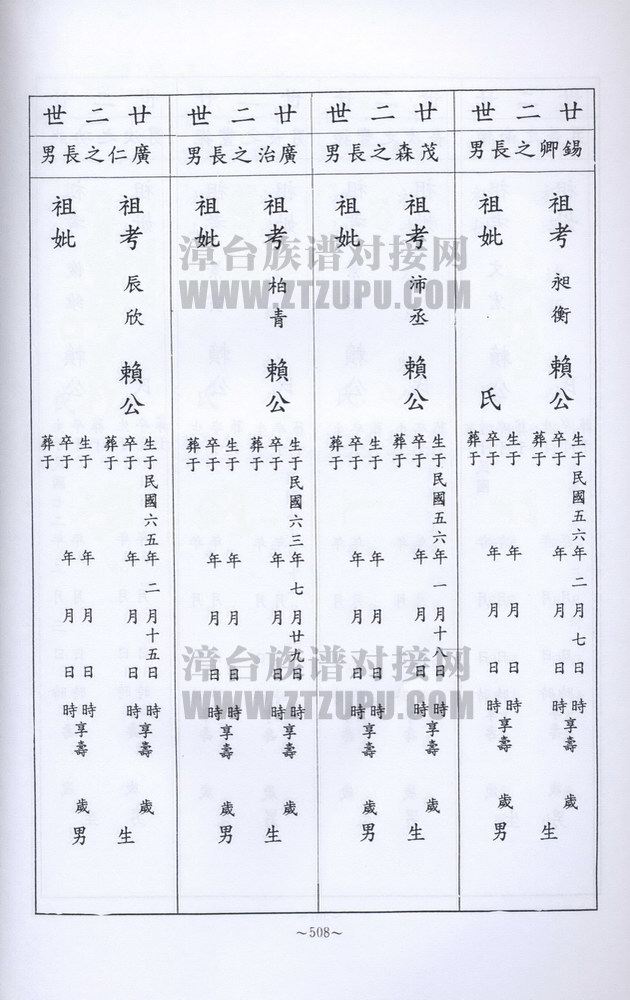 廿二世
錫卿之長男
祖考 昶衡 賴公
生于民國五六年二月七日時
卒于 年 月 日時享壽 歲
葬于
祖妣 氏
生于 年 月 日時
卒于 年 月 日時享壽 歲
葬于
生 男
廿二世
茂森之長男
祖考 沛丞 賴公
生于民國五六年一月十八日時
卒于 年 月 日時享壽 歲
葬于
祖妣
生于 年 月 日時
卒于 年 月 日時享壽 歲
葬于
生 男
廿二世
廣治之長男
祖考 柏青 賴公
生于民國六三年七月廿九日時
卒于 年 月 日時享壽 歲
葬于
祖妣
生于 年 月 日時
卒于 年 月 日時享壽 歲
葬于
生 男
廿二世
廣仁之長男
祖考 辰欣 賴公
生于民國六五年二月十五日時
卒于 年 月 日時享壽 歲
葬于
祖妣
生于 年 月 日時
卒于 年 月 日時享壽 歲
葬于
生 男
漳台族谱对接网
WWW.ZTZUPU.COM
漳台族谱对接网
WWW.ZTZUPU.COM
~508~